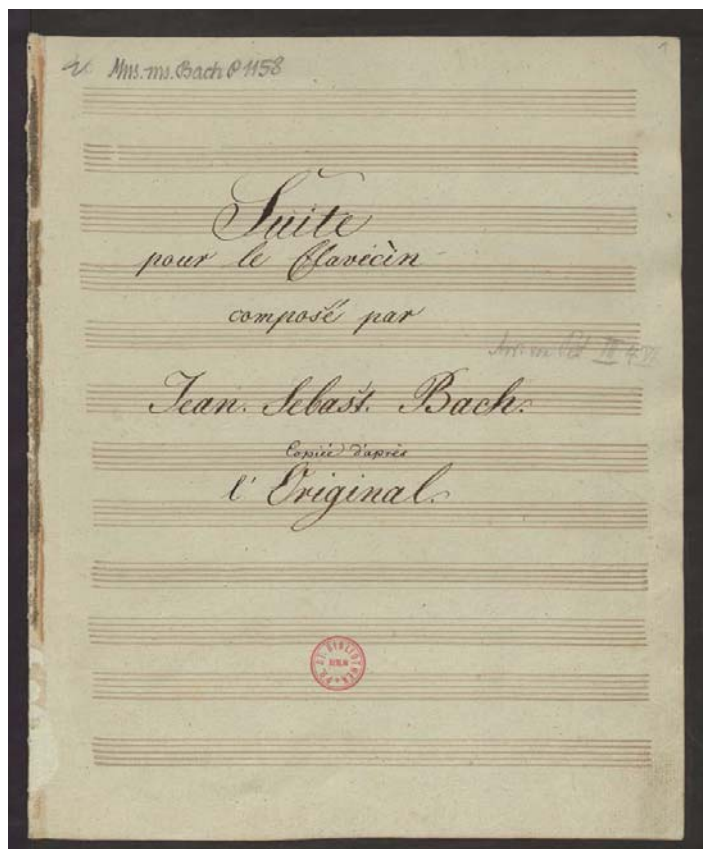 Mus. ms. Bach P 1158
1
Suite
pour le Clavecin
composé par
Jean. Sebast. Bach.
Copiée d'après
l'Original.
BERLIN